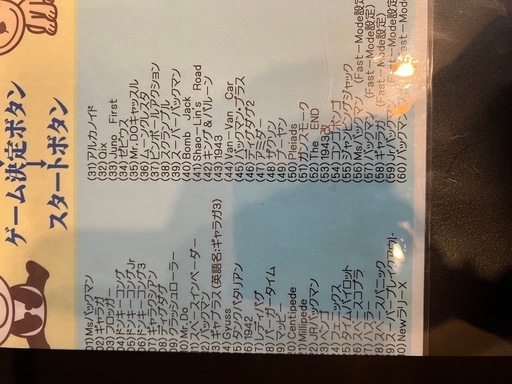 ゲーム決定ボタン
スタートボタン
01)Ms.パックマン
02)ギャラガ
03)フロッガー
04)ドンキーコング
05)ドンキーコングJr
06)ドンキーコング3
07)ギャラクシアン
08)ディグダグ
09)クラッシュローラー
10)Mr. Do
11)スペースインベーダー
12)パックマン
13)ギャプラス(英語名:ギャラガ3)
14)Gyuss
15)タンクバタリアン
16)1942
17)レディバグ
18)バーガータイム
19)マッピー
20)Centipede
21)Millipede
22)JRパックマン
23)ペンゴ
24)フェニックス
25)タイムパイロット
26)スペースコブラ
27)ハスラー
28)スペースパニック
29)スーパーブレークアウト
30)NewラリーX
(31)アルカノイド
(32)Qix
(33)Juno First
(34)ゼビウス
(35)Mr.DO!キャッスル
(36)ムーンクレスタ
(37)ピンボールアクション
(38)スクランブル
(39)スーパーパックマン
(40)Bomb Jack
(41)Shao Lin's Road
(42)キング&バルーン
(43)1943
(44)Van-Van Car
(45)パックマンプラス
(46)ディグダグ2
(47)アミダー
(48)ザクソン
(49)プーヤン
(50)Pleiads
(51)ガンスモーク
(52)The END
(53)1943改
(54)コンゴボンゴ
(55)ジャンピングジャック
(56)Msパックマン (Fast-Mode設定)
(57)パックマン (Fast-Mode設定)
(58)ギャラガ (Fast-Mode設定)
(59)パックマン (Fast-Mode設定
(60)パックマン (Fast-Mode設定